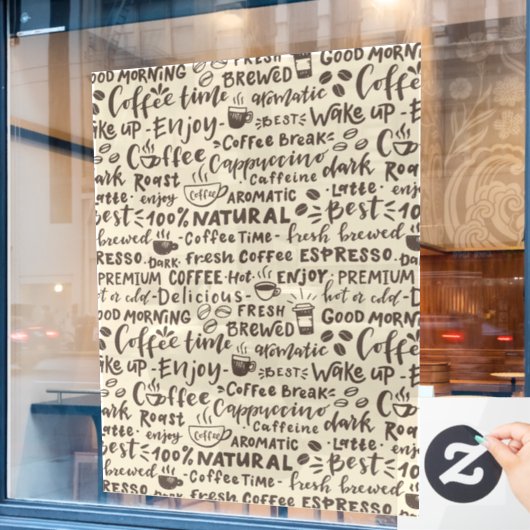 FRESH GOOD MORNING
GOOD MORNING BREWED
Coffee time aromatic Coffee
Wake up - Enjoy - BEST Wake up
Coffee Coffee Break
Cappuccino dark
dark Roast Caffeine Roast
Latte enjoy Coffee AROMATIC Latte enjoy
Best 100% NATURAL Best
brewed - Coffee Time - fresh brewed
ESPRESSO DARK FRESH COFFEE ESPRESSO
PREMIUM COFFEE Hot ENJOY PREMIUM
hot or cold - Delicious - hot or cold - D
GOOD MORNING FRESH BREWED GOOD MORNING
Coffee time aromatic Coffee
Wake up - Enjoy - BEST Wake up
Coffee Coffee Break
Cappuccino dark
dark Roast Caffeine Roast
enjoy Coffee AROMATIC Latte
Best 100% NATURAL Best
brewed - Coffee Time - fresh brewed
ESPRESSO DARK FRESH COFFEE ESPRESSO
Z